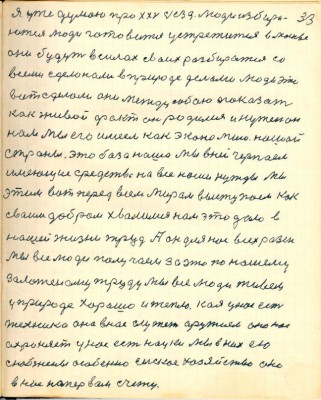 я уже думаю про XXV съезд. люди избира- 33
ются люди готовятся устремится в Москве
они будут в силах своих разбиратся со
всеми сделонами в природе делами люди это
вот сделали они между собою а показат
как живой факт он родился и нужен он
нам мы его имеем как экономию нашой
страны. это база наша мы в ней черпаем
имеющие средства на все наши нужды мы
этим вот перед всем миром выступаем как
своим добром хвалимся нам это дало в
нашей жизни труд А он для нас всех равен
мы все люди получаем за это по нашему
заложеному труду мы все люди живем
у природе хорошо и тепло. Кая у нас ест
техника она в нас служит оружием она нас
охраняет у нас ест науки мы в них ею
снабжены особенно сельское хозяйство оно
в нас на первом счету.